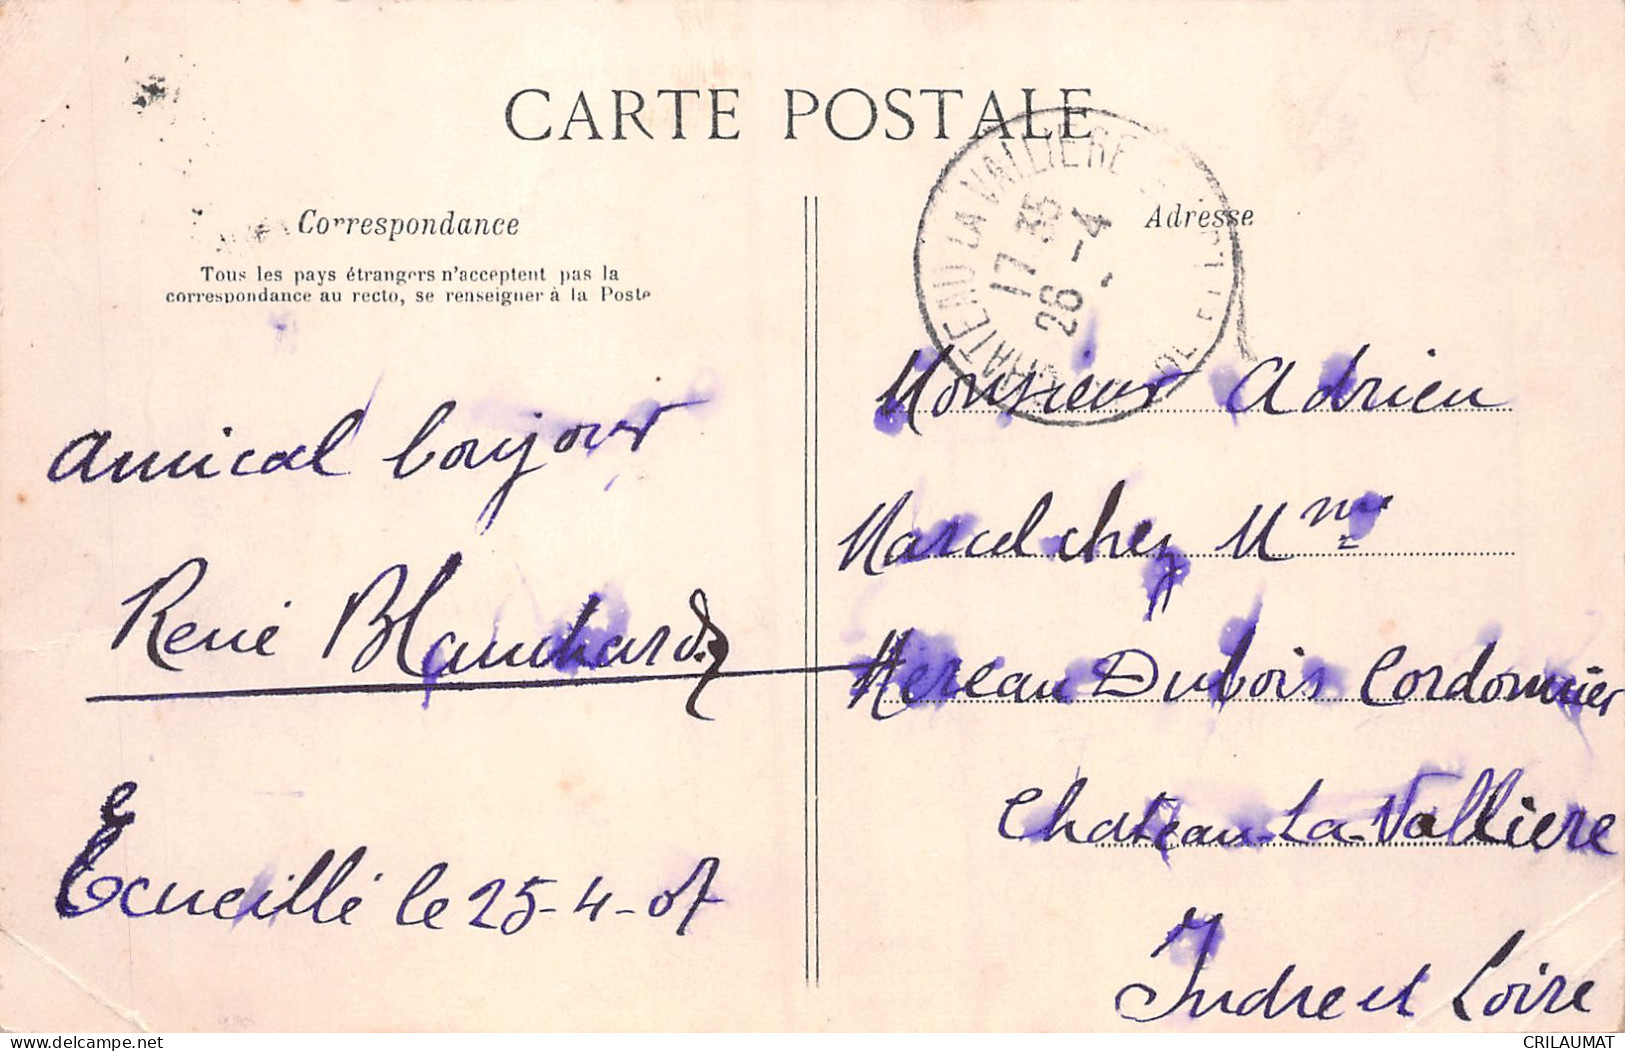 CARTE POSTALE
Correspondance
Tous les pays étrangers n'acceptent pas la
correspondance au recto, se renseigner à la Poste
Amical bonjour
René Blanchard
Ecueillé le 25-4-07
Adresse
CHATEAU LA VALLIERE
17 35
26 -4
Monsieur Adrien
Marcel chez Mme
Hereau Dubois Cordonnier
Chateau-La-Valliere
Indre et Loire
CRILAUMAT